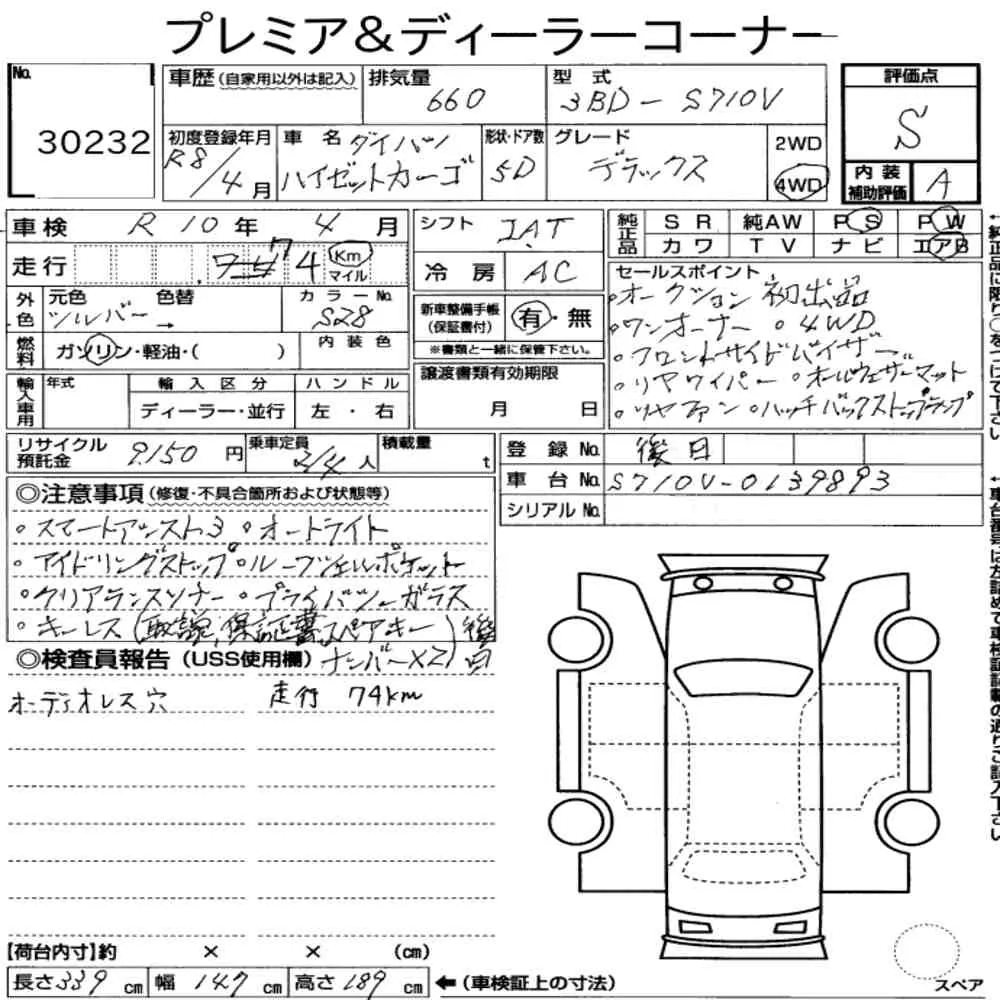 プレミア&ディーラーコーナー
No. 30232
車歴 (自家用以外は記入)
排気量 660
型式 3BD-S710V
評価点 S
初度登録年月 R8/4月
車名 ダイハツ ハイゼットカーゴ
形状・ドア数 5D
グレード デラックス
2WD
4WD
内装補助評価 A
車検 R10年 4月
シフト IAT
純正品 SR 純AW PS PW
カワ TV ナビ エアB
走行 74 Km マイル
冷房 AC
セールスポイント
・オークション初出品
・ワンオーナー ・4WD
・フロントサイドバイザー
・リヤワイパー ・オールウェザーマット
・リヤファン ・ハッチバックストップランプ
外色 元色 色替 カラーNo.
シルバー → S28
新車整備手帳(保証書付) 有・無
※書類と一緒に保管下さい。
燃料 ガソリン・軽油・( ) 内装色
輸入車用 年式 輸入区分 ハンドル
ディーラー・並行 左・右
譲渡書類有効期限
月 日
リサイクル預託金 9,150円
乗車定員 2/4人
積載量 t
登録No. 後日
車台No. S710V-0139893
シリアルNo.
◎注意事項 (修復・不具合箇所および状態等)
・スマートアシスト3 ・オートライト
・アイドリングストップ ・ルーフシェルポケット
・クリアランスソナー ・プライバシーガラス
・キーレス (取説,保証書,スペアキー) 後日
ナンバー×2
◎検査員報告 (USS使用欄)
オーディオレス穴 走行 74km
【荷台内寸】約 × × (cm)
長さ339cm 幅147cm 高さ189cm ←(車検証上の寸法)
スペア
↑純正品に限り○をつけて下さい
↑車台番号は左詰めで車検証記載の通りご記入下さい